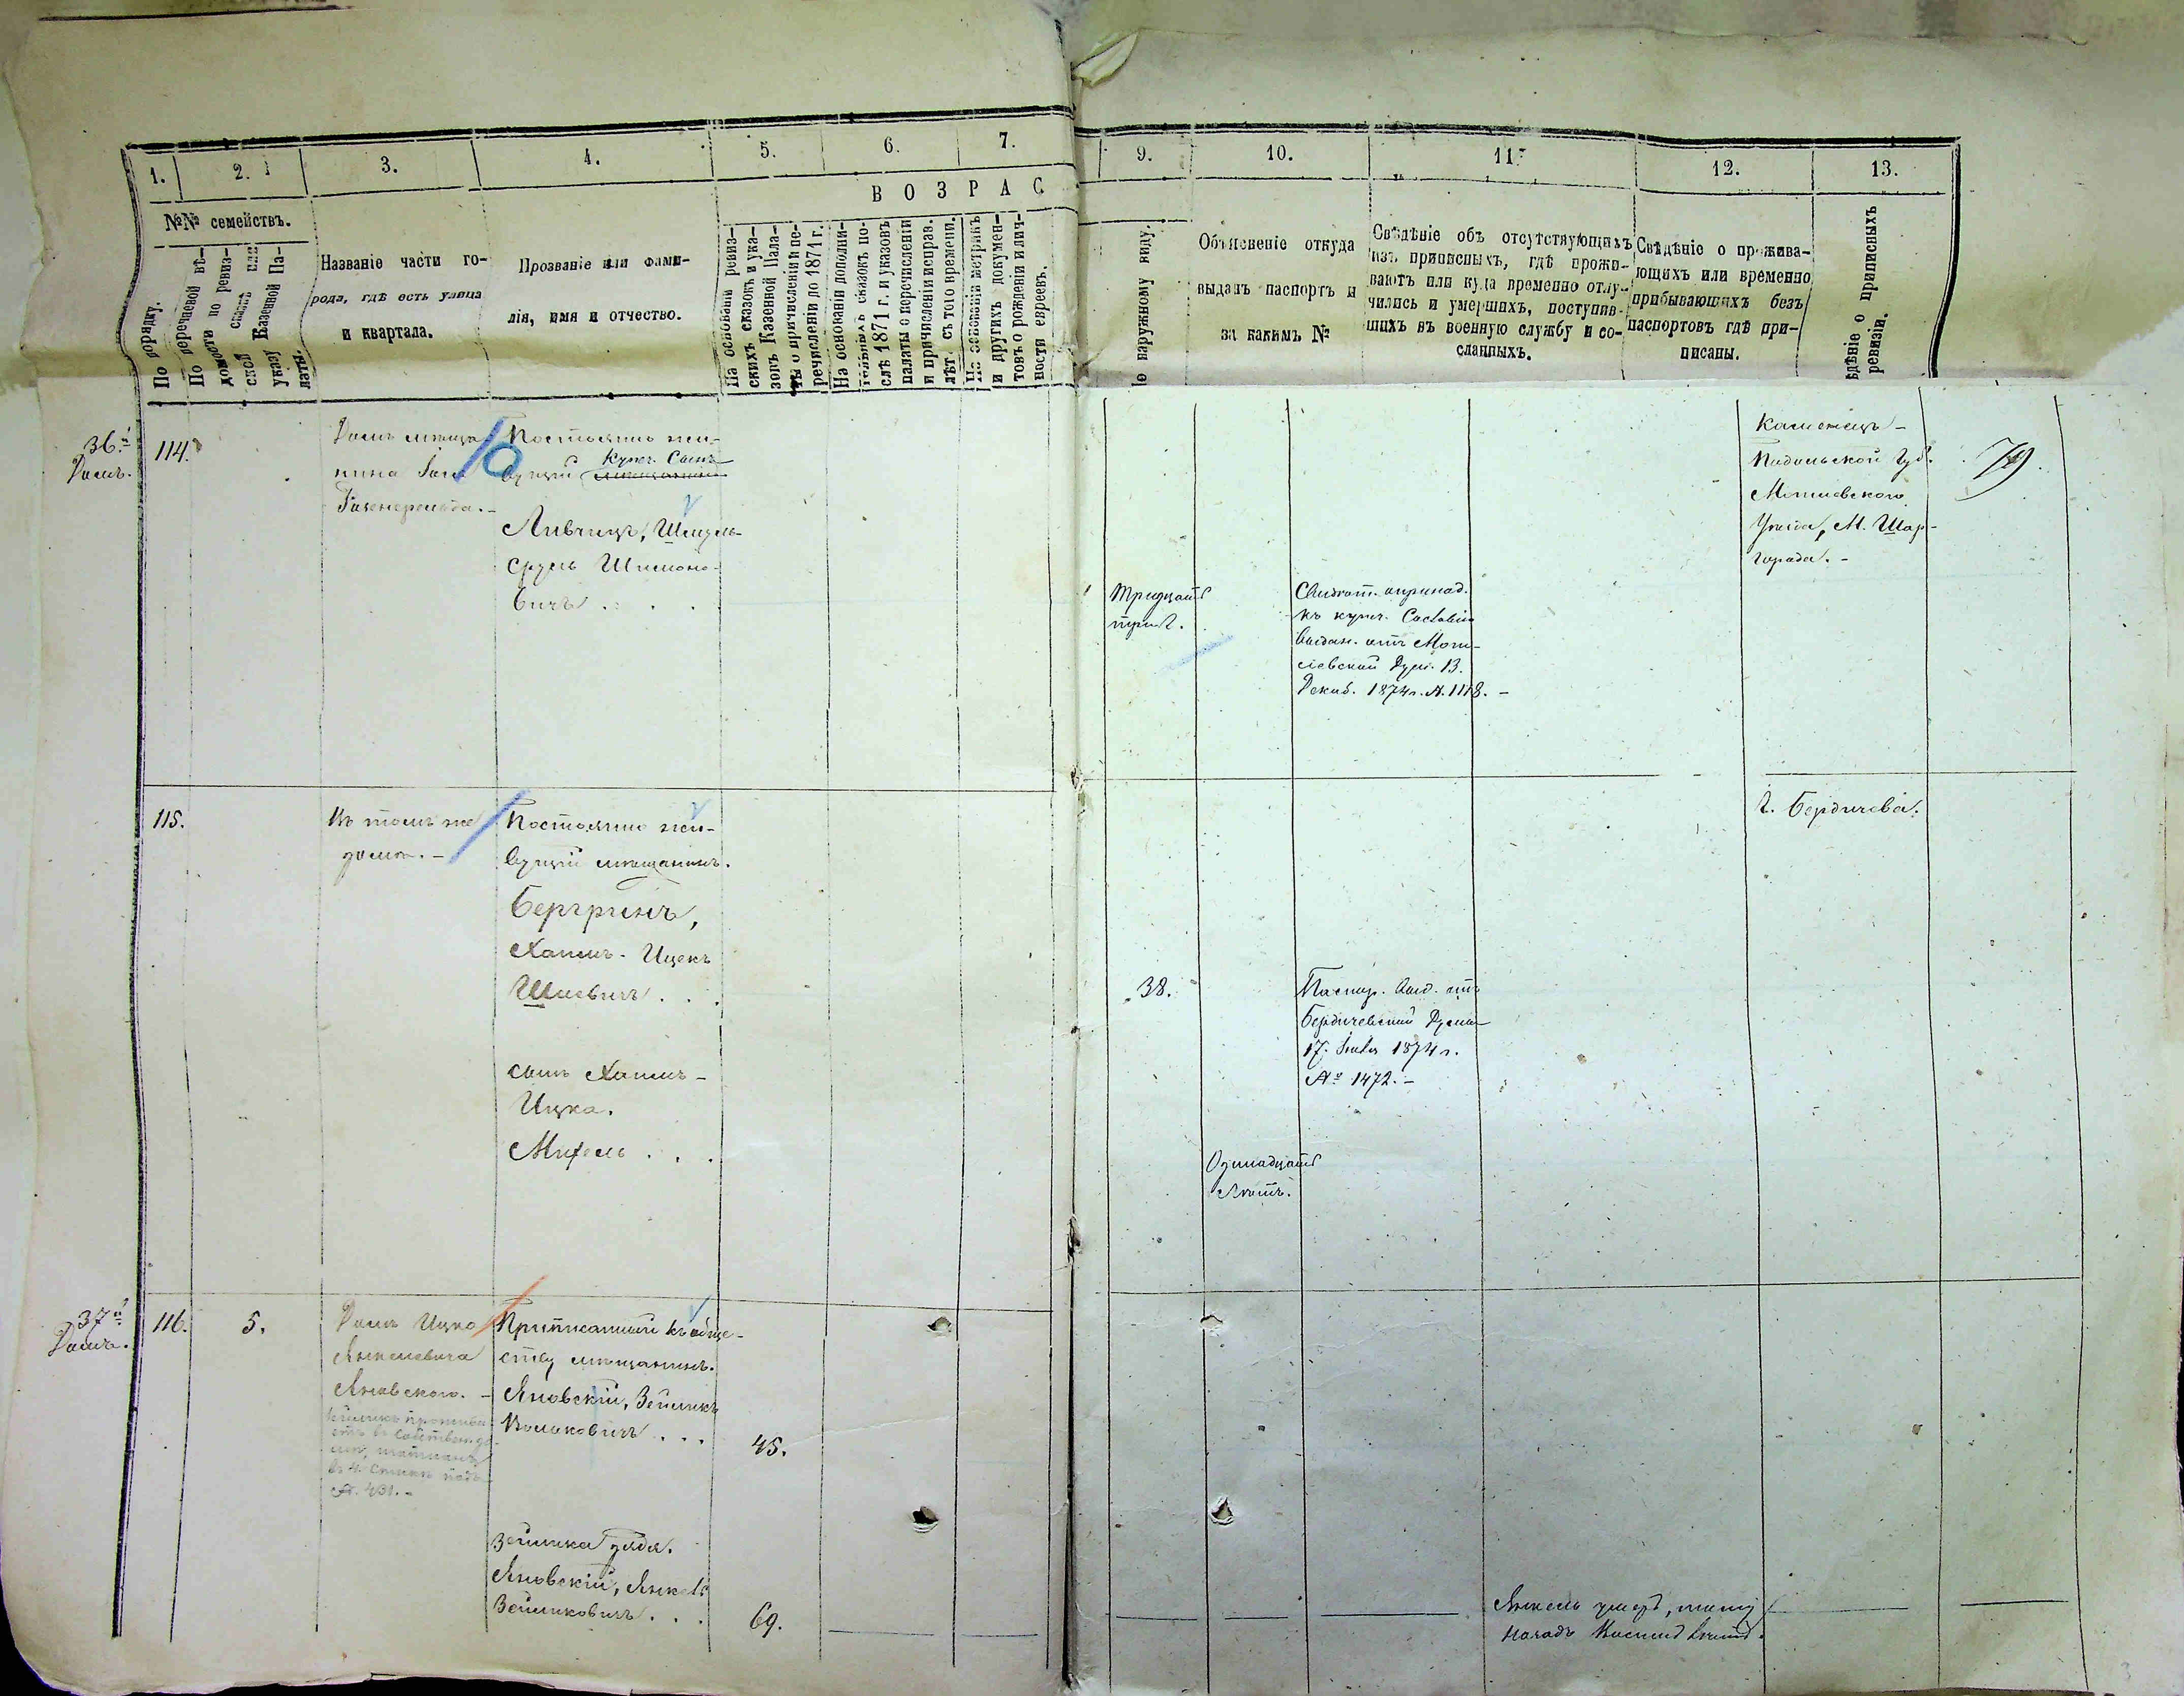 1.
2.
3.
4.
5.
6.
7.
9.
10.
11.
12.
13.
№№ семействъ.
В О З Р А С
По порядку.
По перечневой вѣ-
домости по ревиз-
ской сказкѣ или
указу Казенной Па-
латы.
Названіе части го-
рода, гдѣ есть улица
и квартала.
Прозваніе или фами-
лія, имя и отчество.
На основаніи ревиз-
скихъ сказокъ и ука-
зовъ Казенной Пала-
ты о причисленіи и пе-
речисленіи до 1871 г.
На основаніи дополни-
тельныхъ сказокъ по-
слѣ 1871 г. и указовъ
палаты о перечисленіи
и причисленіи исправ.
лѣтъ съ того времени.
На основаніи метрикъ
и другихъ докумен-
товъ о рожденіи и лич-
ности евреевъ.
По наружному виду.
Объясненіе откуда
выданъ паспортъ и
за какимъ №
Свѣдѣніе объ отсутствующихъ
изъ приписныхъ, гдѣ прожи-
ваютъ или куда временно отлу-
чились и умершихъ, поступив-
шихъ въ военную службу и со-
сланныхъ.
Свѣдѣніе о прожива-
ющихъ или временно
прибывающихъ безъ
паспортовъ гдѣ при-
писаны.
Свѣдѣніе о приписныхъ
ревизіи.
36.й
Домъ.
114.
Домъ мѣща
нина
Постоянно жи-
вущій Купеч. Сынъ
мѣщанинъ
Лившицъ, Шмуль-
Сруль Шимоно-
вичъ . . .
Тридцать
три л.
Свидѣт. опринад.
къ купеч. Сословію
выдан. отъ Моги-
левской Думы 13.
Декаб. 1874 г. №. 1118. -
Каменецъ -
Подольской Губ.
Могилевского
Уѣзда, М. Шар-
города. -
79.
115.
Въ томъ же
домѣ. -
Постоянно жи-
вущій мѣщанинъ.
Бергринъ,
Хаимъ-Ицекъ
Шаевичъ . . .
38.
Паспор. выд. отъ
Бердичевской Думы
17. Іюля 1874 г.
№ 1472. -
Г. Бердичева.
сынъ Хаимъ-
Ицка.
Михель . . .
Одинадцать
лѣтъ.
37й
Домъ.
116.
5.
Домъ Ицко
Янкелевича
Яновского. -
Приписанный къ обще-
ству мѣщанинъ.
Яновскій, Зейликъ
Волковичъ . . .
45.
Зейлика дядя.
Яновскій, Янкель
Зейликовичъ . . .
69.
Янкель умеръ, тому
назадъ